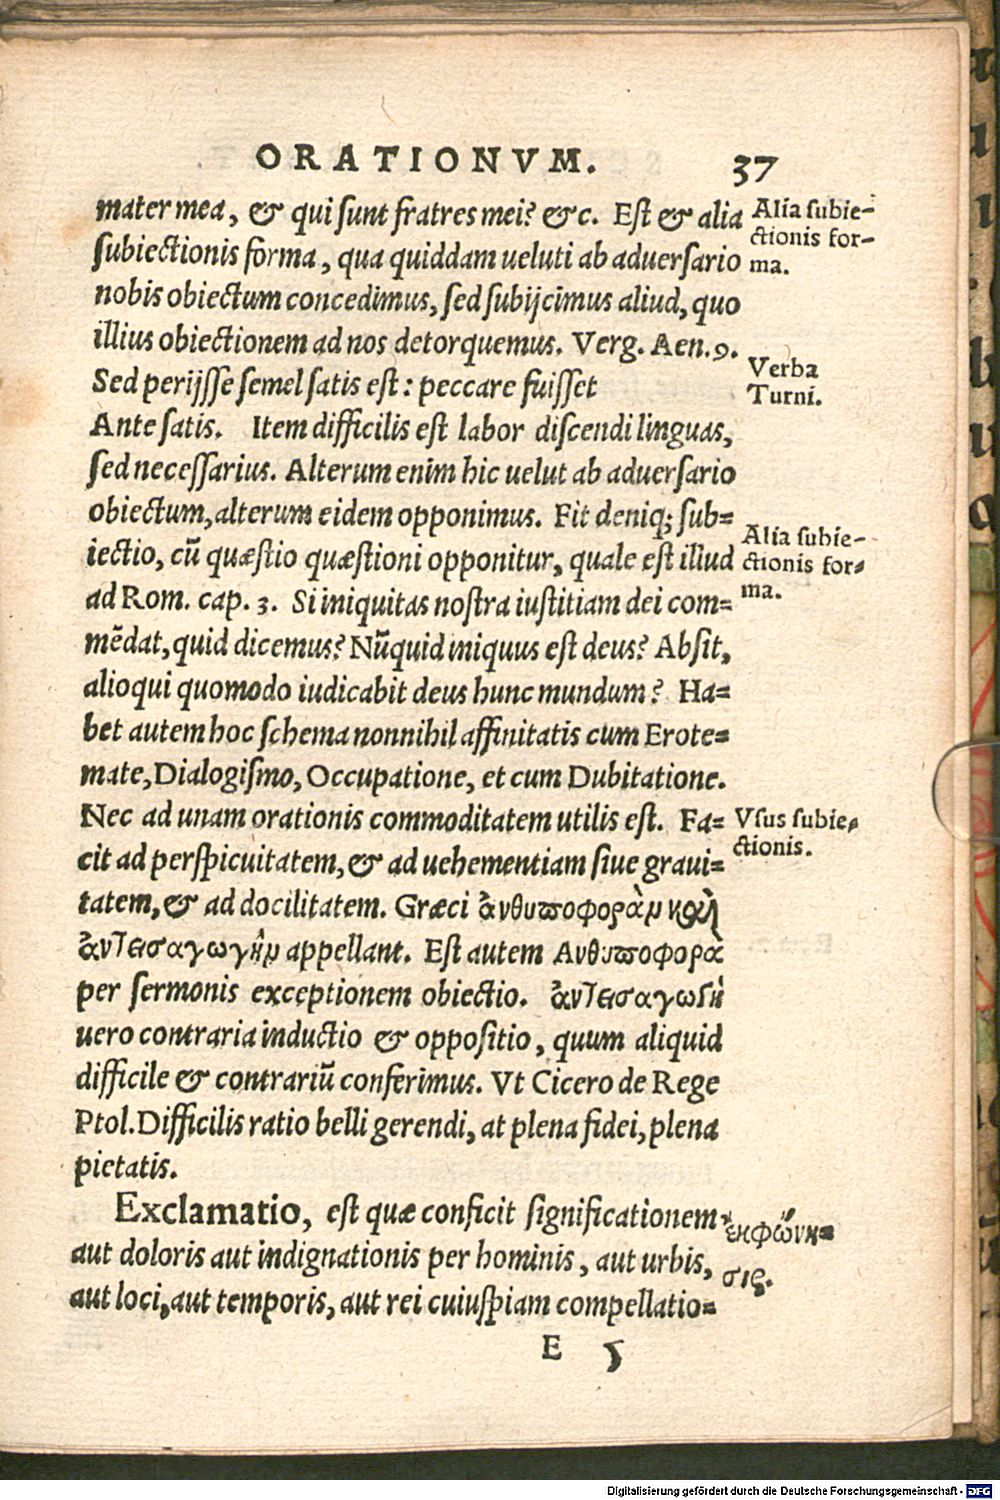 ORATIONVM. 37
mater mea, & qui sunt fratres mei? &c. Est & alia
subiectionis forma, qua quiddam ueluti ab aduersario
nobis obiectum concedimus, sed subijcimus aliud, quo
illius obiectionem ad nos detorquemus. Verg. Aen. 9.
Sed perijsse semel satis est: peccare fuisset
Ante satis. Item difficilis est labor discendi linguas,
sed necessarius. Alterum enim hic uelut ab aduersario
obiectum, alterum eidem opponimus. Fit deniq; sub=
iectio, cū quæstio quæstioni opponitur, quale est illud
ad Rom. cap. 3. Si iniquitas nostra iustitiam dei com=
mēdat, quid dicemus? Nūquid iniquus est deus? Absit,
alioqui quomodo iudicabit deus hunc mundum? Ha=
bet autem hoc schema nonnihil affinitatis cum Erote=
mate, Dialogismo, Occupatione, et cum Dubitatione.
Nec ad unam orationis commoditatem utilis est. Fa=
cit ad perspicuitatem, & ad uehementiam siue graui=
tatem, & ad docilitatem. Græci ἀνθυποφορὰμ καὶ
ἀντεισαγωγὴμ appellant. Est autem Ανθυποφορὰ
per sermonis exceptionem obiectio. ἀντεισαγωγὴ
uero contraria inductio & oppositio, quum aliquid
difficile & contrariū conferimus. Vt Cicero de Rege
Ptol. Difficilis ratio belli gerendi, at plena fidei, plena
pietatis.
Exclamatio, est quæ conficit significationem
aut doloris aut indignationis per hominis, aut urbis,
aut loci, aut temporis, aut rei cuiuspiam compellatio=
E 5
Alia subie-
ctionis for-
ma.
Verba
Turni.
Alia subie-
ctionis for-
ma.
Vsus subie-
ctionis.
ἐκφώνη=
σις.
Digitalisierung gefördert durch die Deutsche Forschungsgemeinschaft - DFG